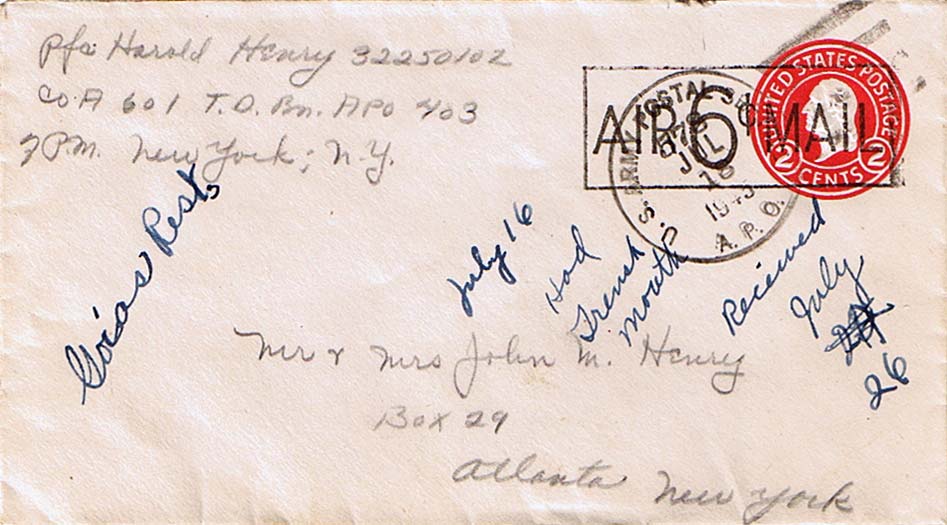 Pfc Harold Henry 32250102
Co A 601 T.D. Bn. APO 403
% PM. New York, N.Y.
UNITED STATES POSTAGE
2 CENTS 2
AIR 6¢ MAIL
U.S. ARMY POSTAL SE
JUL
16
1943
A.P.O.
Rest.
July 16
Had
Trensh
mouth
Received
July
26
Mr & Mrs John M. Henry
Box 29
Atlanta New York